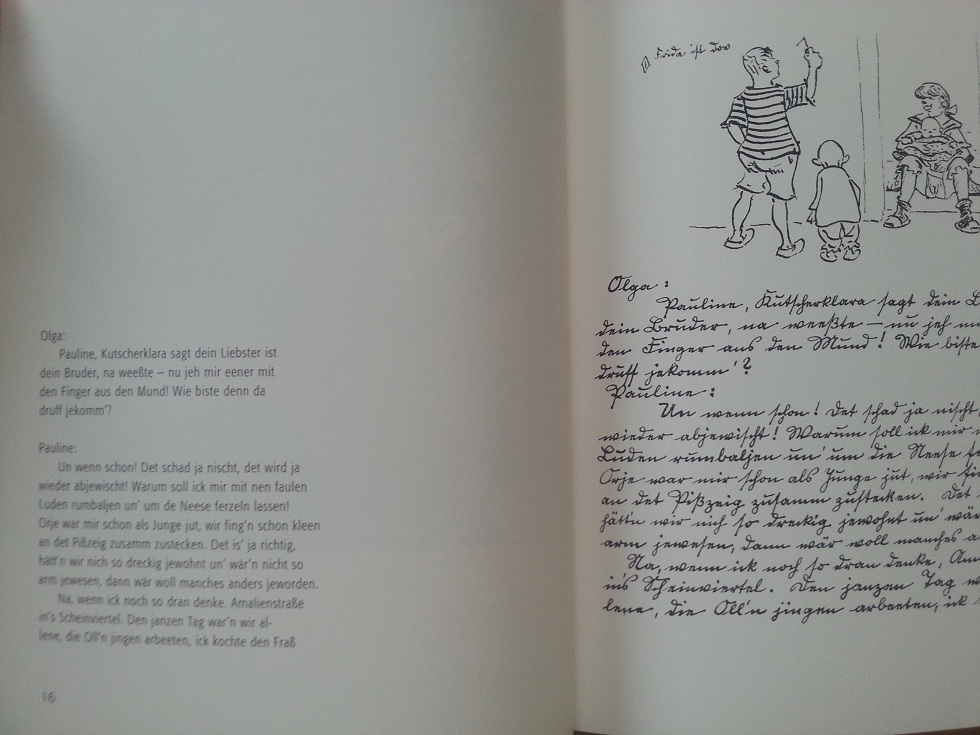 Olga:
Pauline, Kutscherklara sagt dein Liebster ist
dein Bruder, na weeßte – nu jeh mir eener mit
den Finger aus den Mund! Wie biste denn da
druff jekomm'?
Pauline:
Un wenn schon! Det schad ja nischt, det wird ja
wieder abjewischt! Warum soll ick mir mit nen faulen
Luden rumbaljen un' um de Neese ferzeln lassen!
Orje war mir schon als Junge jut, wir fing'n schon kleen
an det Pißzeig zusamm zustecken. Det is' ja richtig,
hätt'n wir nich so dreckig jewohnt un' wär'n nicht so
arm jewesen, dann wär woll manches anders jeworden.
Na, wenn ick noch so dran denke. Amalienstraße
in's Scheinviertel. Den janzen Tag war'n wir al-
lene, die Oll'n jingen arbeeten, ick kochte den Fraß
16
Frida ist doo
Olga:
Pauline, Kutscherklara sagt dein
dein Bruder, na weeßte – nu jeh
den Finger aus den Mund! Wie biste
druff jekomm'?
Pauline:
Un wenn schon! Det schad ja nischt,
wieder abjewischt! Warum soll ick mir
Luden rumbaljen un' um die Neese
Orje war mir schon als Junge jut, wir
an det Pißzeig zusamm zustecken. Det
hätt'n wir nich so dreckig jewohnt un'
arm jewesen, dann wär woll manches
Na, wenn ick noch so dran denke,
in's Scheinviertel. Den janzen Tag
lene, die Oll'n jingen arbeeten, ick